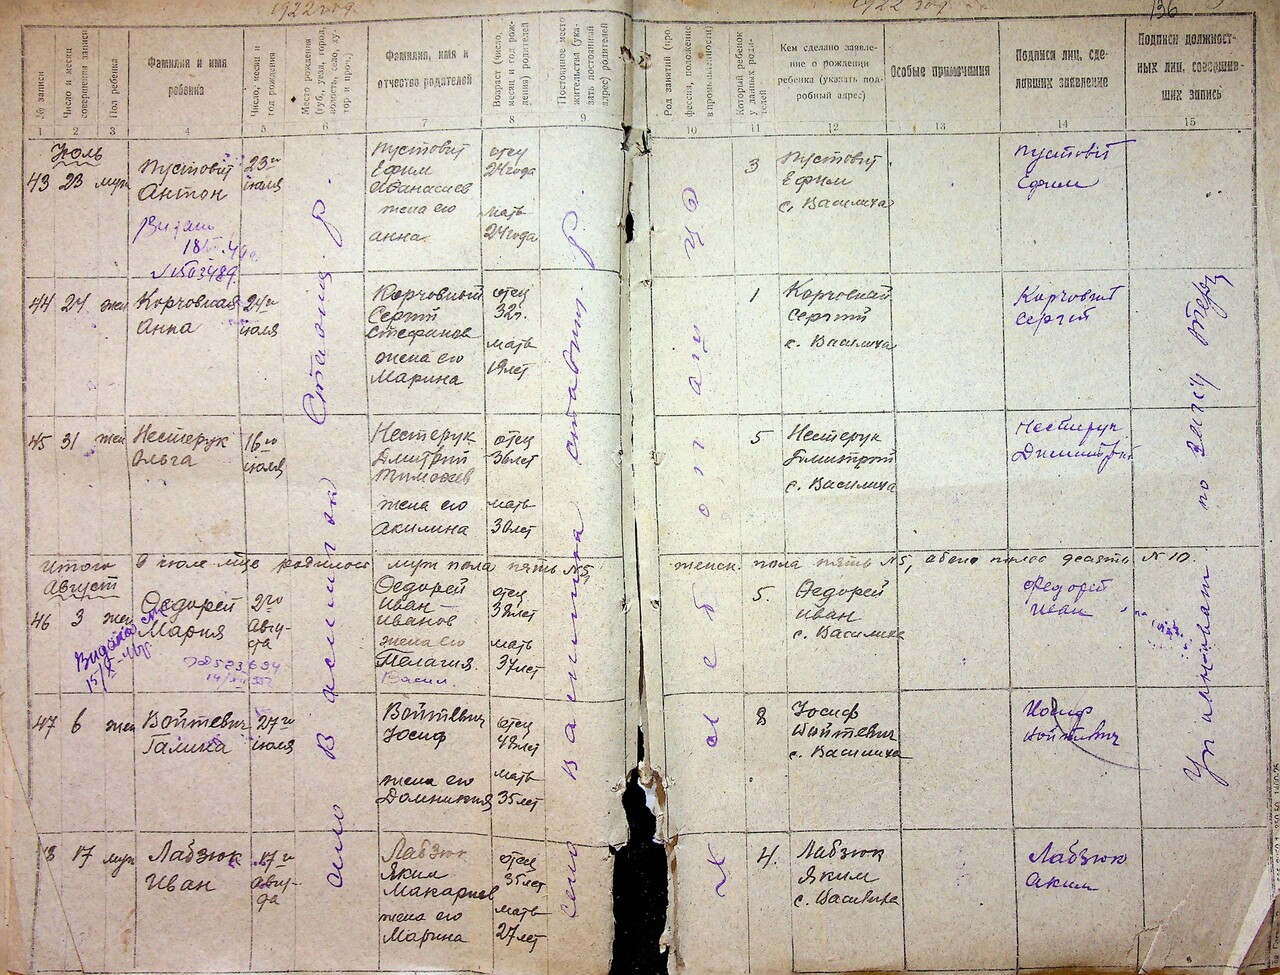 1922 год
1922 год
136
№ записи
Число и месяц совершения записи
Пол ребенка
Фамилия и имя
ребенка
Число, месяц и год рождения
Место рождения (губ., уезд, город, волость, село, хутор и проч.)
Фамилия, имя и
отчество родителей
Возраст (число, месяц и год рождения) родителей
Постоянное место жительства (указать постоянный адрес) родителей
Род занятий (профессия, положение в промышленности)
Который ребенок у данных родителей
Кем сделано заявле-
ние о рождении
ребенка (указать под-
робный адрес)
Особые примечания
Подписи лиц, сде-
лавших заявление
Подписи должност-
ных лиц, совершив-
ших запись
1 2 3 4 5 6 7 8 9 10 11 12 13 14 15
Июль
43 23 муж
Пустовит
Антон
23го
июля
Пустовит
Ефим
Афанасиев
жена его
анна
отец
24 года
мать
24 года
3
Пустовит
Ефим
с. Василиха
Пустовіт
Ефим
№503489
44 24 жен
Корчовская
Анна
24го
июля
Корчовный
Сергий
Стефанов
жена его
Марина
отец
32г.
мать
19 лет
1
Корчовный
Сергий
с. Василиха
Корчовнит
Сергій
45 31 жен
Нестерук
Ольга
16го
июля
Нестерук
Дмитрий
Тимофеев
жена его
Акилина
отец
36 лет
мать
30 лет
5
Нестерук
Димитрий
с. Василиха
Нестерук
Итого в июле м-це родилось муж пола пять №5, женск. пола пять №5, обоего пола десять №10.
Август
46 3 жен
Федорей
Мария
2го
Авгу-
ста
Федорей
Иван
Иванов
жена его
Пелагия
Васил.
отец
38 лет
мать
37 лет
5.
Федорей
Иван
с. Василиха
Федорей
Иван
47 6 жен
Войтевич
Галина
27го
июля
Войтевич
Иосиф
жена его
Домникия
отец
48 лет
мать
35 лет
8
Иосиф
Войтевич
с. Василиха
Иосиф
Войтевич
17 муж
Лабзюк
Иван
17го
Авгу-
ста
Лабзюк
Яким
Макариев
жена его
Марина
отец
35 лет
мать
27 лет
4.
Лабзюк
Яким
с. Василиха
Лабзюк
Аким
село
село
хлебопашец